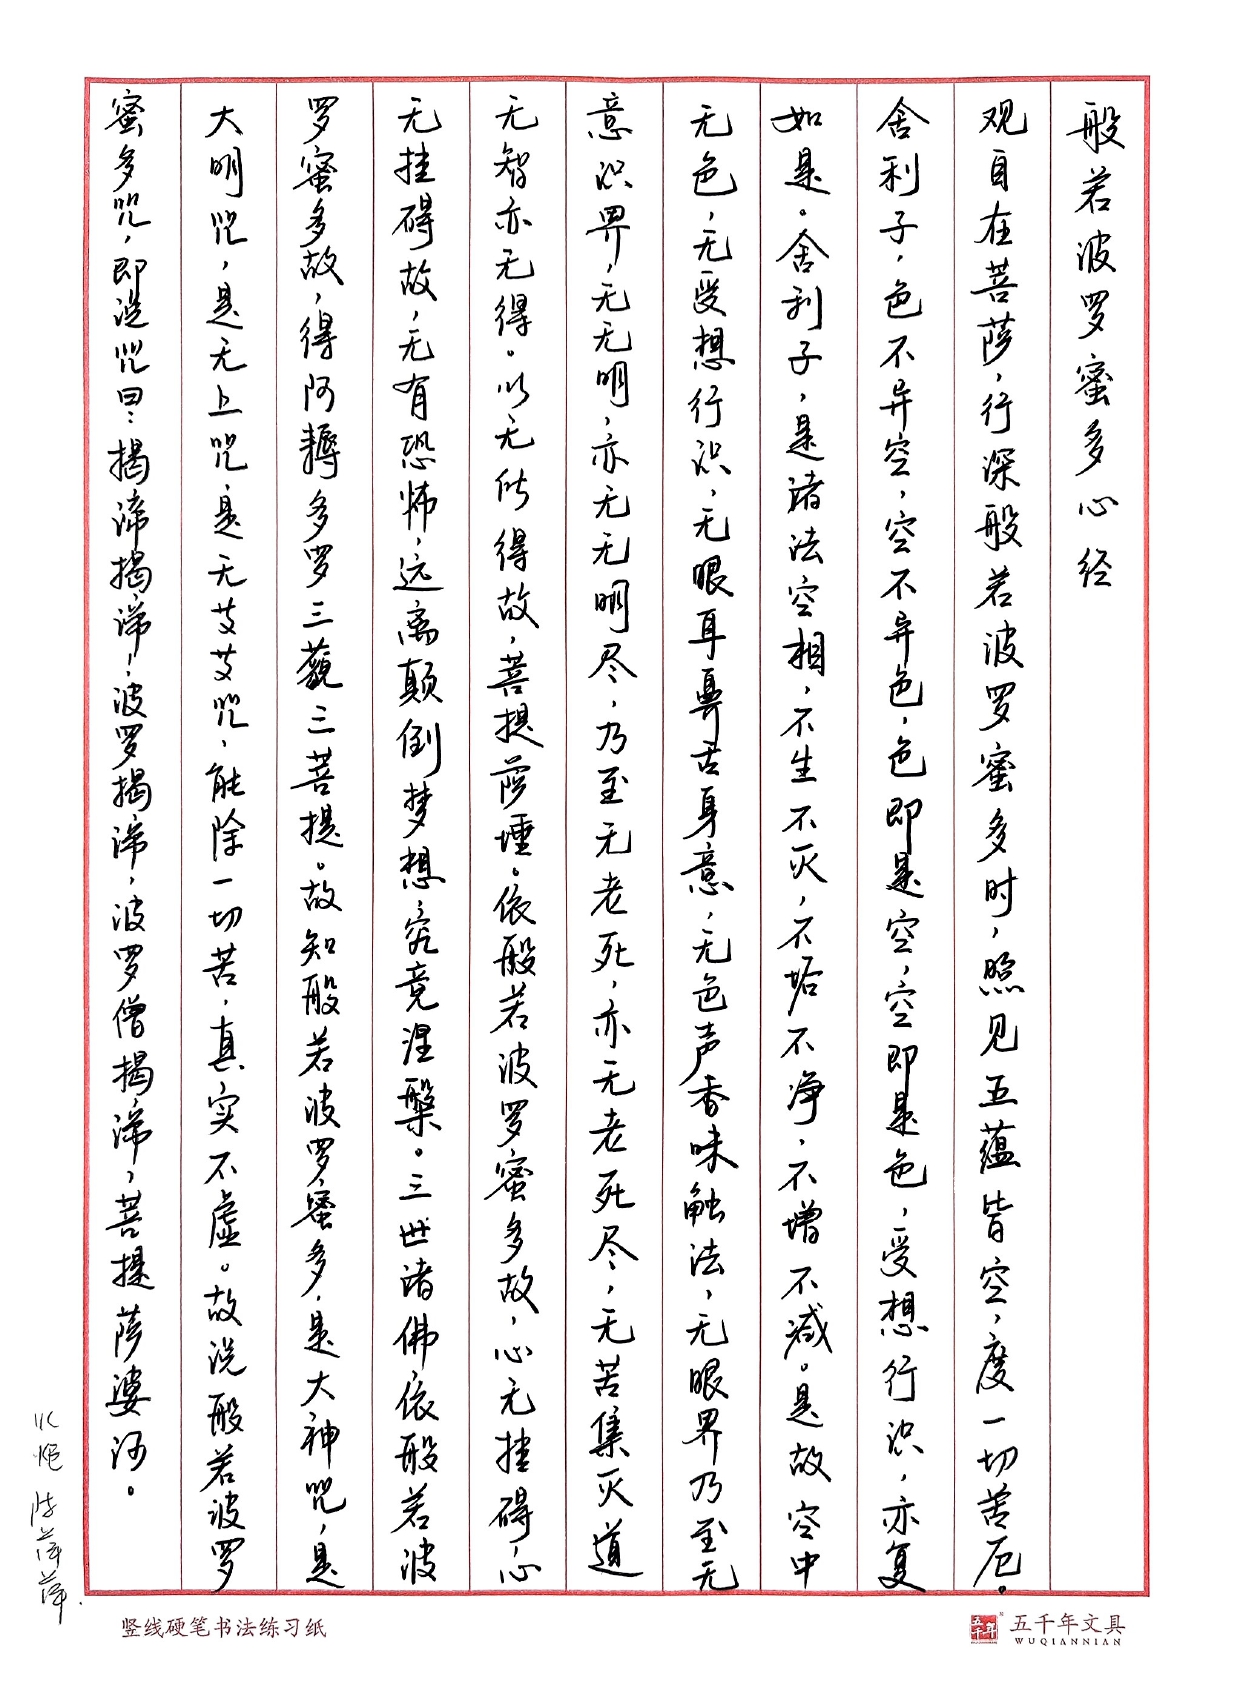 般若波罗蜜多心经
观自在菩萨,行深般若波罗蜜多时,照见五蕴皆空,度一切苦厄。
舍利子,色不异空,空不异色,色即是空,空即是色,受想行识,亦复
如是。舍利子,是诸法空相,不生不灭,不垢不净,不增不减。是故空中
无色,无受想行识,无眼耳鼻舌身意,无色声香味触法,无眼界乃至无
意识界,无无明,亦无无明尽,乃至无老死,亦无老死尽,无苦集灭道
无智亦无得。以无所得故,菩提萨埵。依般若波罗蜜多故,心无挂碍心
无挂碍故,无有恐怖,远离颠倒梦想究竟涅槃。三世诸佛依般若波
罗蜜多故,得阿耨多罗三藐三菩提。故知般若波罗蜜多,是大神咒,是
大明咒,是无上咒是无等等咒,能除一切苦,真实不虚。故说般若波罗
蜜多咒,即说咒曰:揭谛揭谛,波罗揭谛,波罗僧揭谛,菩提萨婆诃。
陈萍萍.
竖线硬笔书法练习纸
五千年文具
WUQIANNIAN